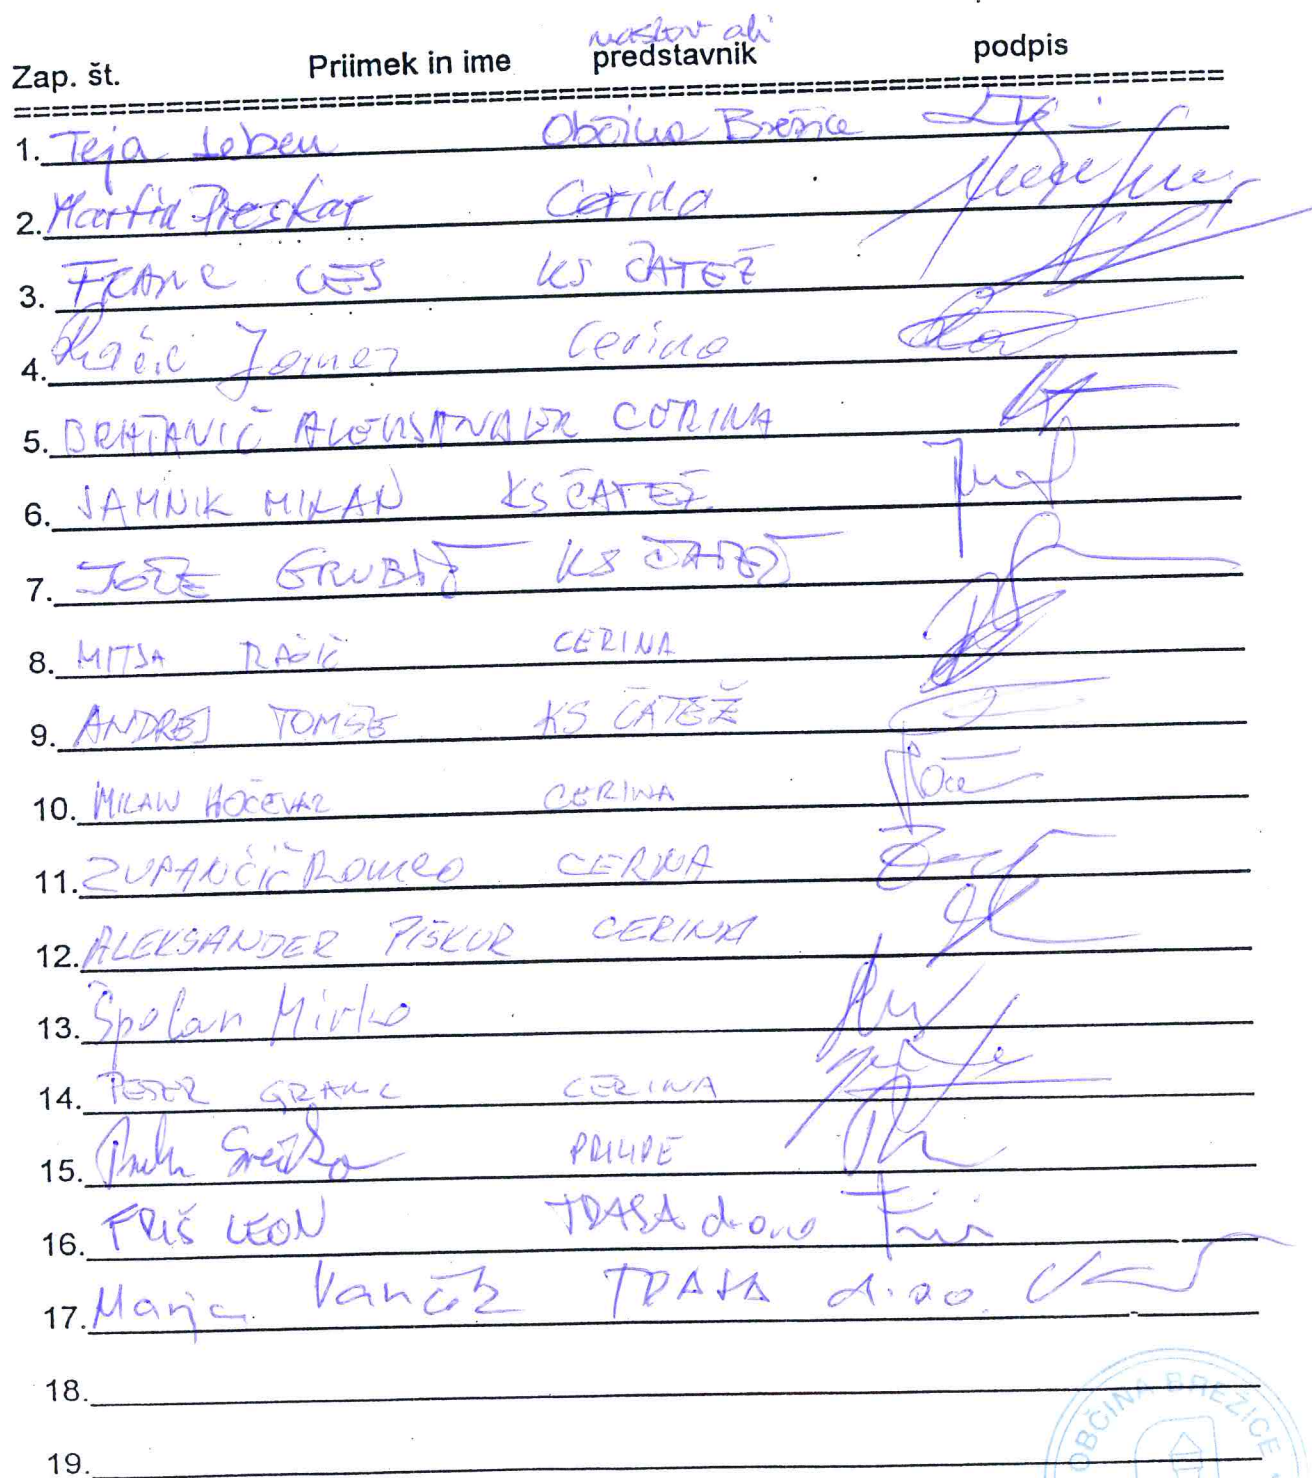 naslov ali
Zap. št. Priimek in ime predstavnik podpis
1. Teja Leben Občina Brežice
2. Martin Preskar Cerina
3. FRANC LES KS ČATEŽ
4. Račič Janez Cerina
5. BRATANIČ ALEKSANDER CERINA
6. JAMNIK MILAN KS ČATEŽ
7. JOŽE GRUBIČ KS ČATEŽ
8. MITJA RAČIČ CERINA
9. ANDREJ TOMŠE KS ČATEŽ
10. MILAN HOČEVAR CERINA
11. ZUPANČIČ ROMEO CERINA
12. ALEKSANDER PIŠKUR CERINA
13. Špolar Mirko
14. PETER GRAMC CERINA
15. Srečko PRILIPE
16. FRIŠ LEON TRASA d.o.o.
17. Marija TRASA d.o.o.
18.
19.
OBČINA BREŽICE